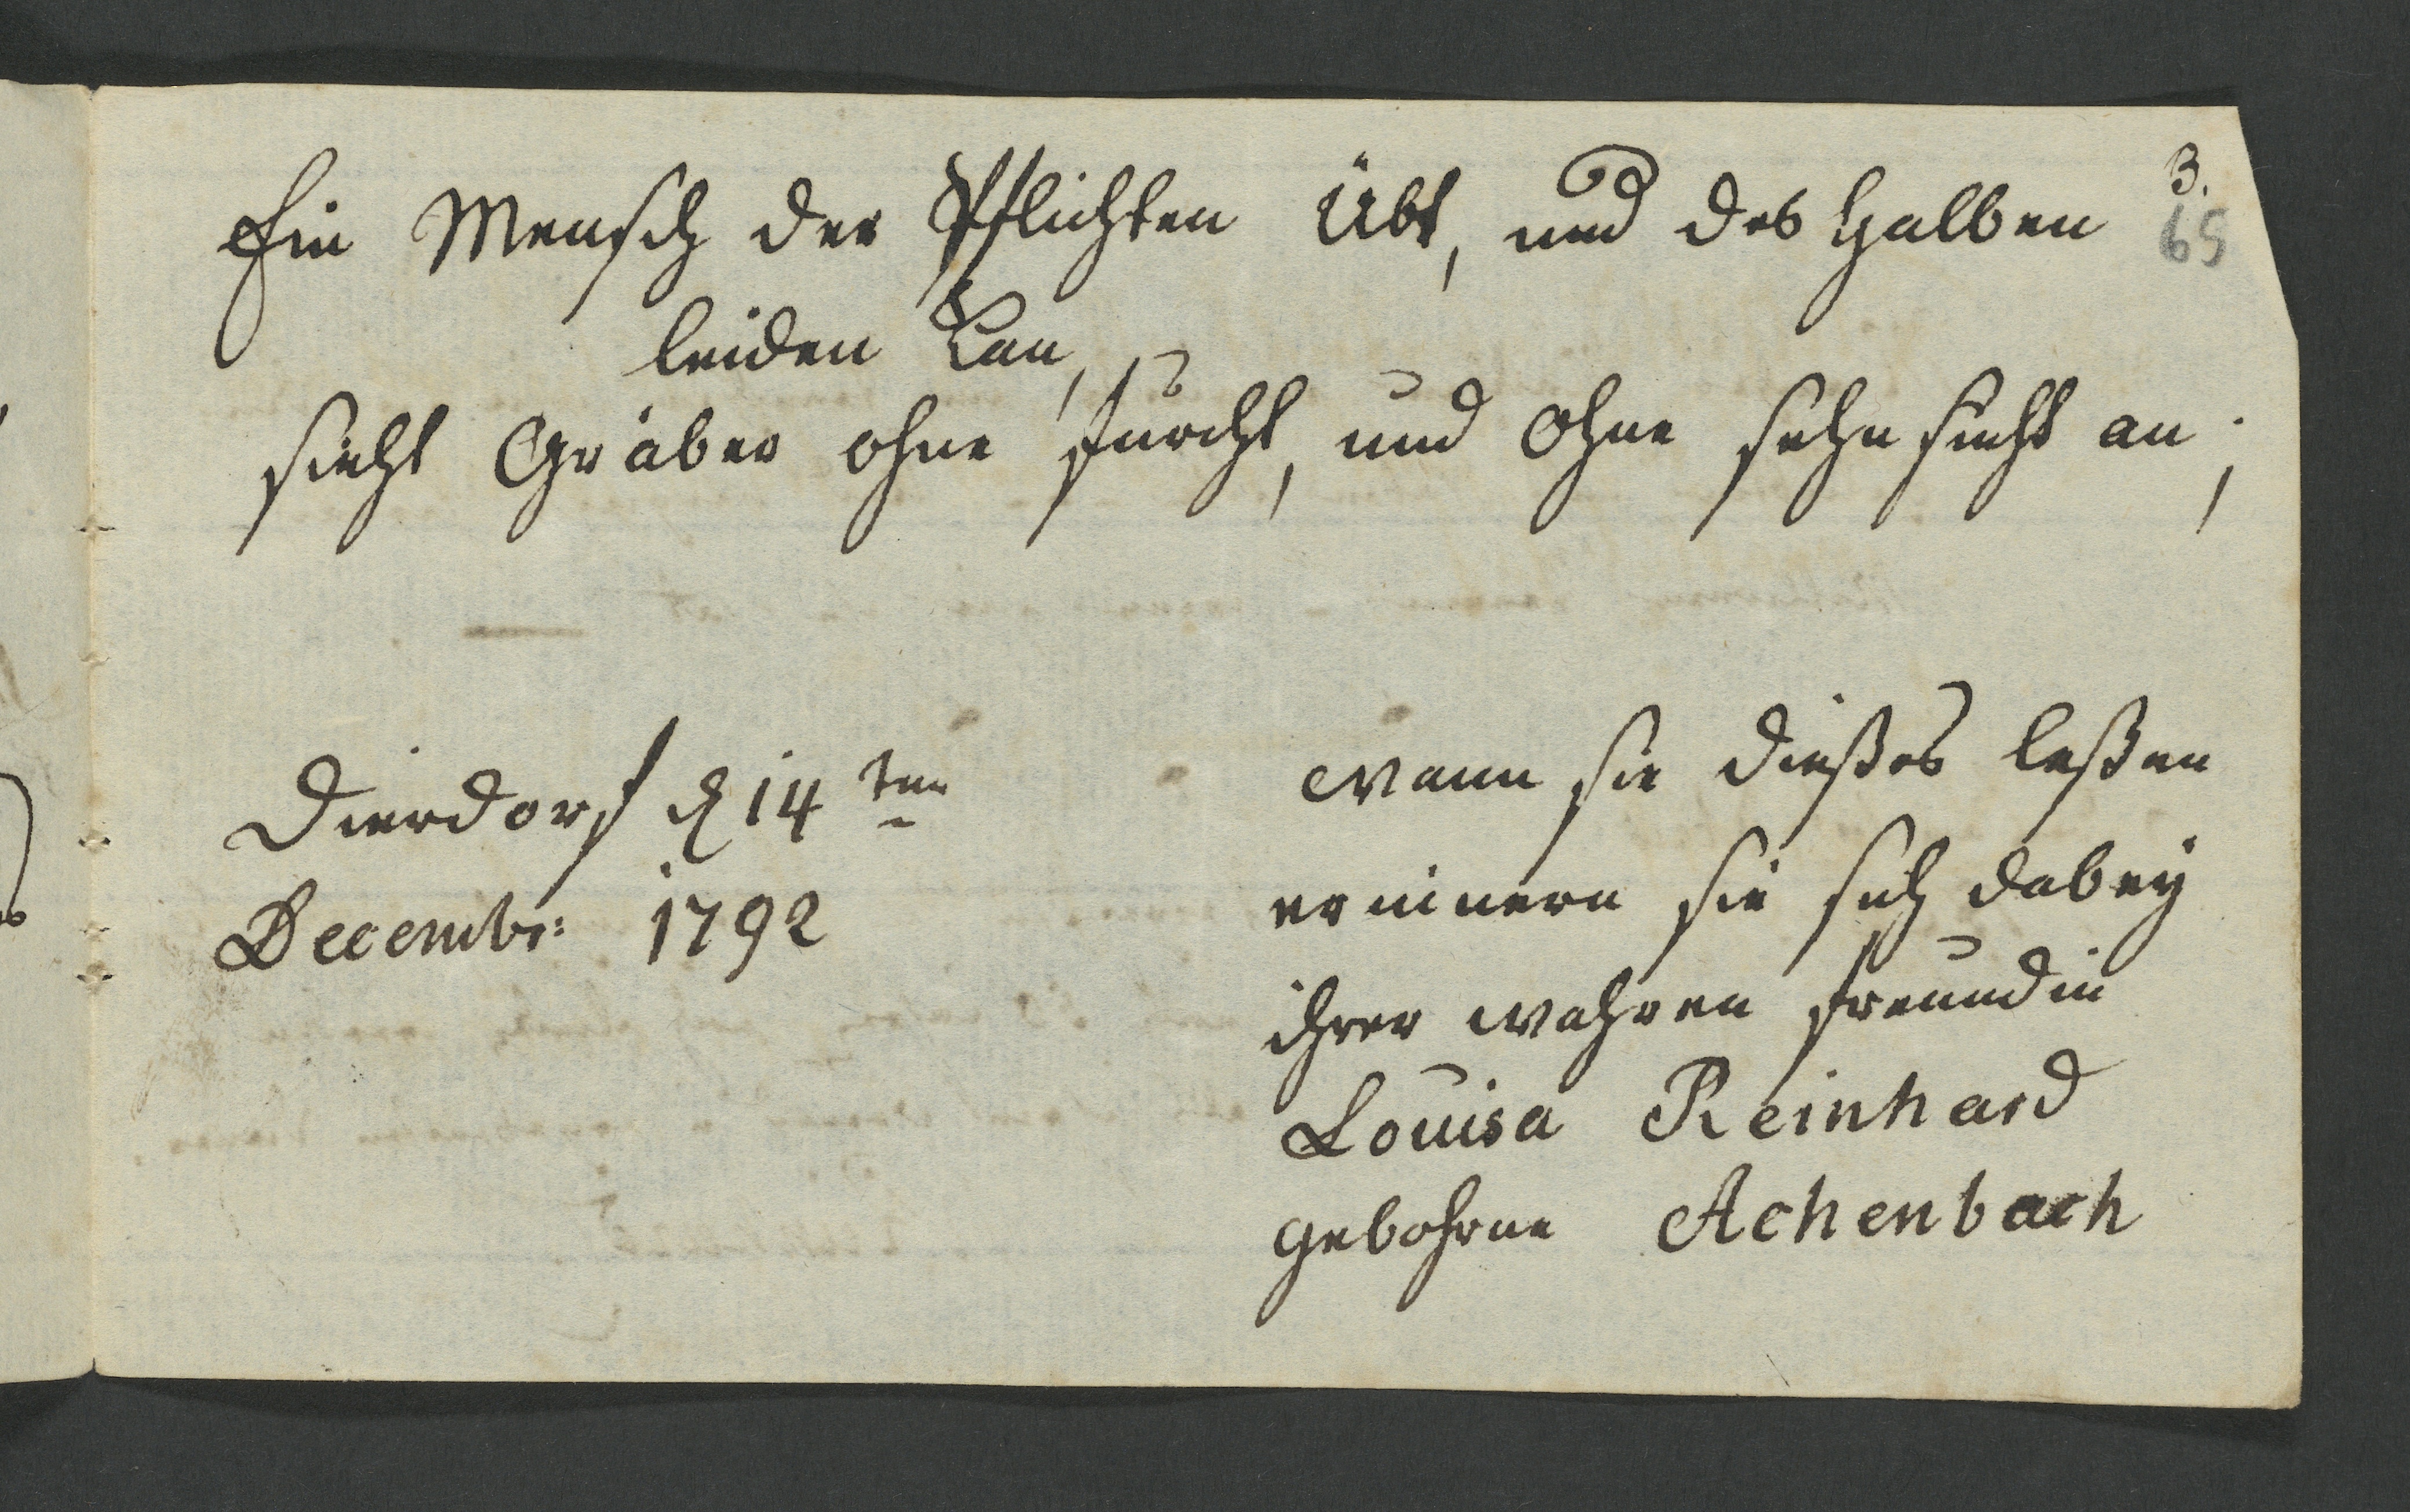 3.
65
Ein Mensch der Pflichten Übt, und des halben
leiden Kan,
sieht Gräber ohne furcht, und ohne sehn sucht an;
Dierdorf d 14ten
Decembr: 1792
wann sie dießes leßen
erninern sie sich dabey
ihrer wahren freundin
Louisa Reinhard
gebohrne Achenbach